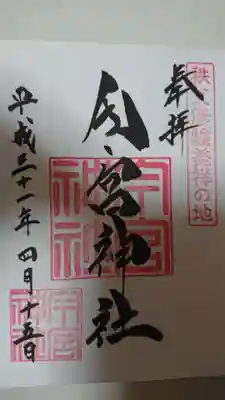 奉拝
今宮神社
今宮神社
平成三十一年四月十五日
今宮神社